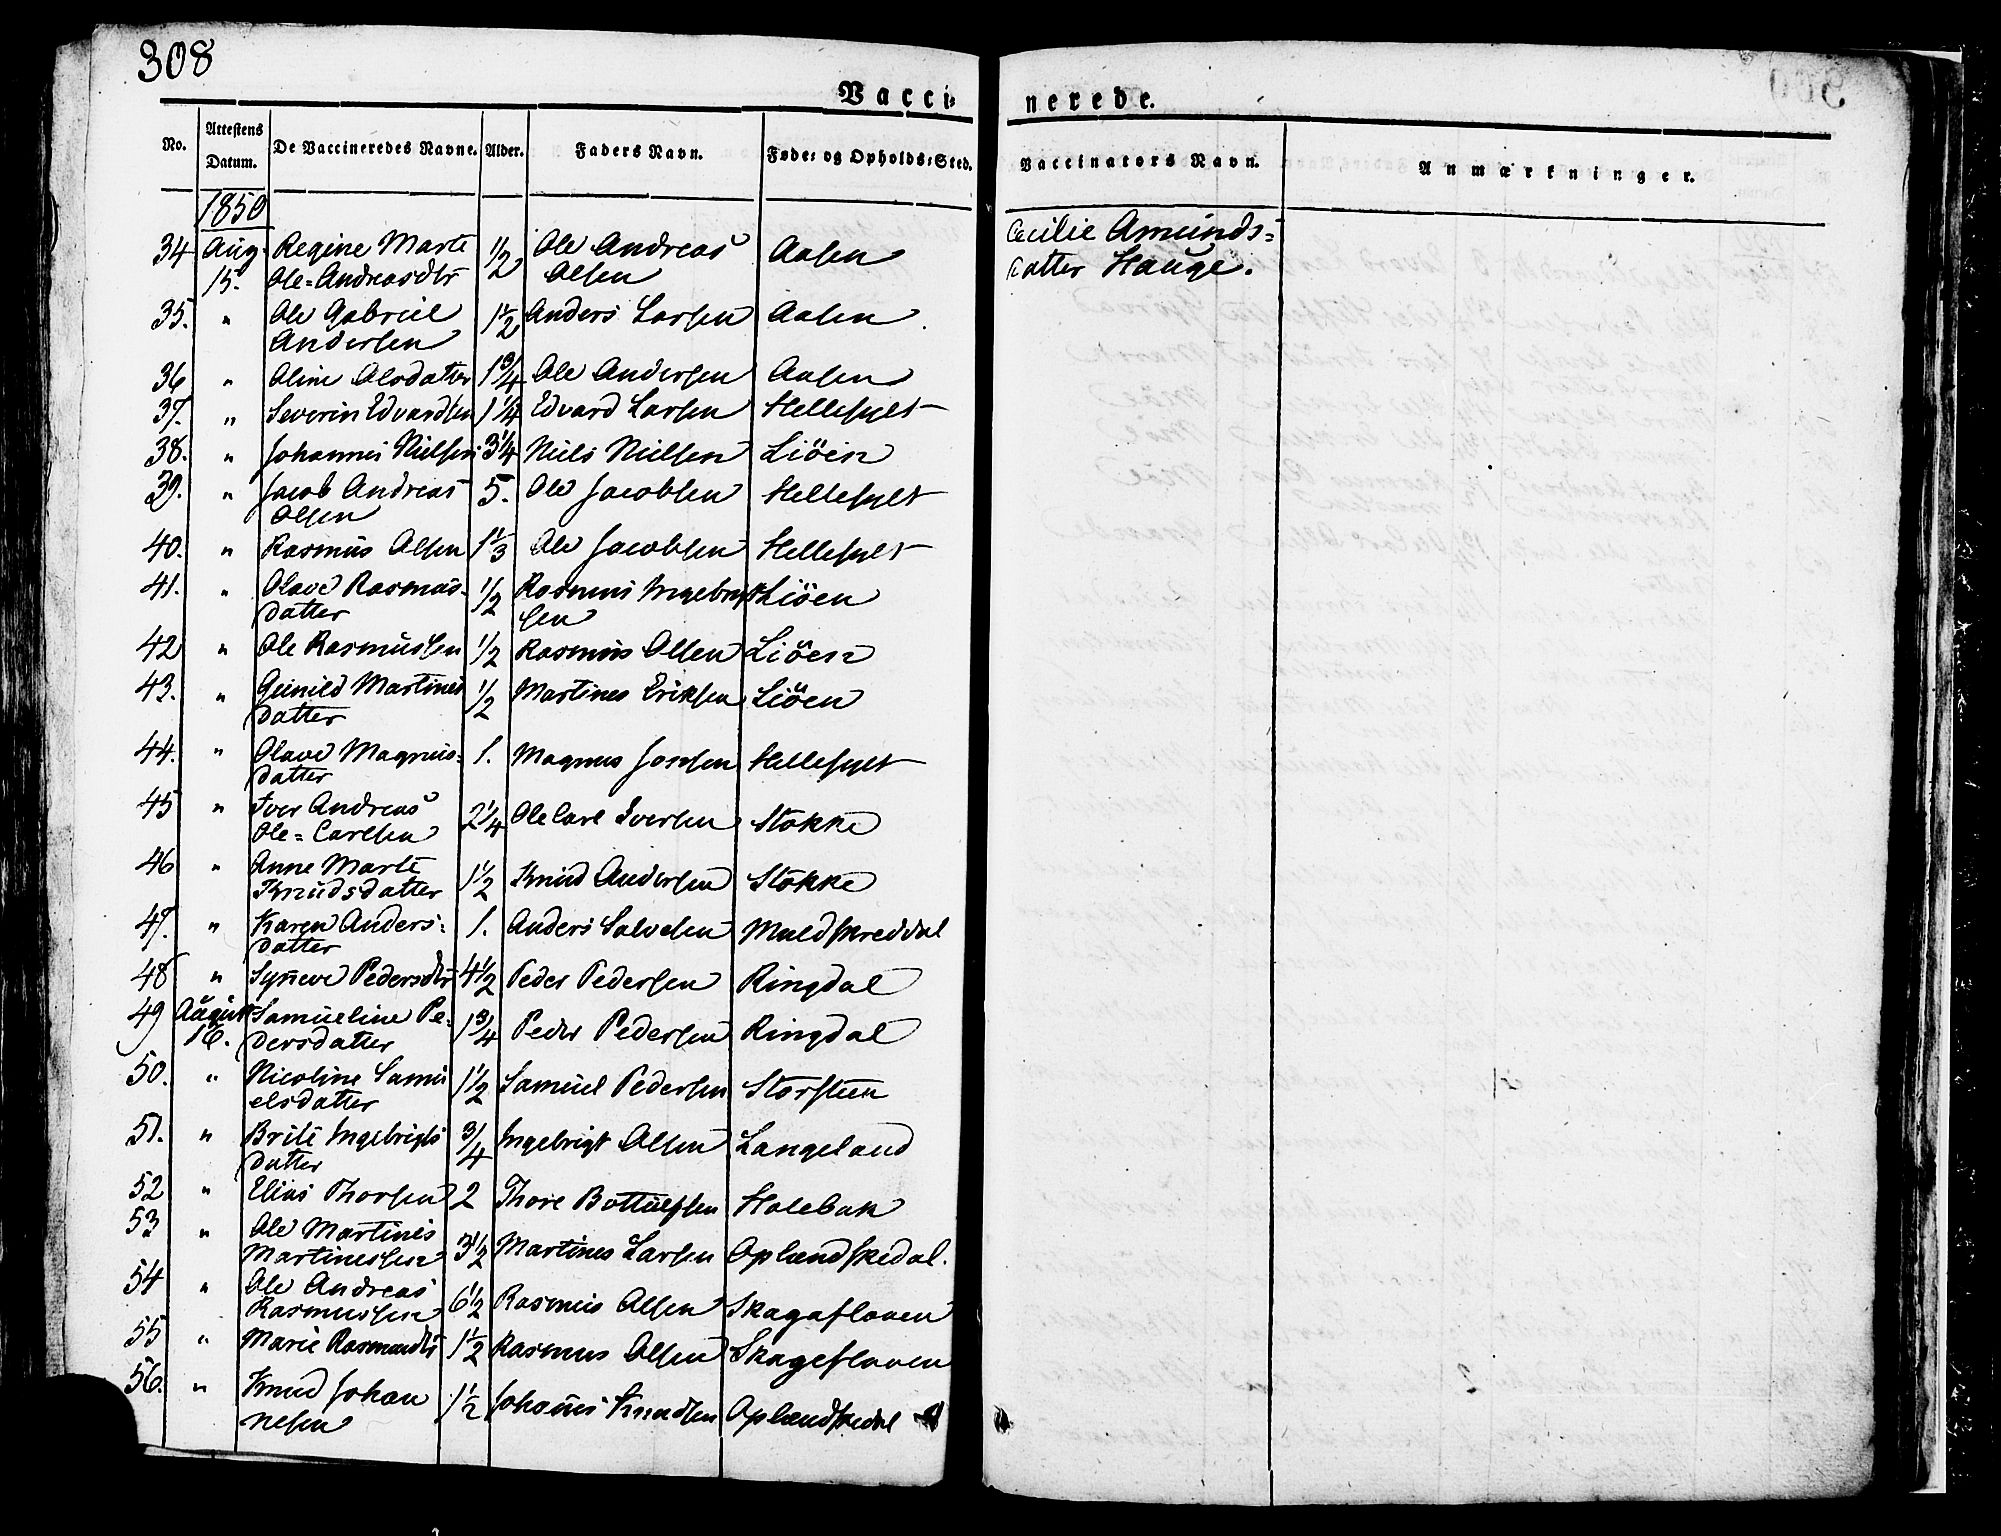 308
Vacci-
nerede.
No. Attestens Datum. De Vaccineredes Navne. Alder. Faders Navn. Føde- og Opholds-Sted. Vaccinators Navn. Anmærkninger.
1850
34 Aug. Regine Marte 1/2 Ole Andreas Aasen Cecilie Amunds-
15. Ole-Andreasdtr Olsen datter Hauge.
35. " Ole Gabriel 1 1/2 Anders Larsen Aasen
Andersen
36 " Oline Olsdatter 1 3/4 Ole Andersen Aasen
37. " Severin Edvardsen 1 1/4 Edvard Larsen Hellesylt
38. " Johannes Nielsen 3 1/4 Niels Nielsen Liöen
39. " Jacob Andreas 5. Ole Jacobsen Hellesylt
Olsen
40. " Rasmus Olsen 1 1/3 Ole Jacobsen Hellesylt
41. " Olave Rasmus- 1/2 Rasmus Ingebrigt Liöen
datter sen
42 " Ole Rasmussen 1/2 Rasmus Olsen Liöen
43. " Gunild Martines 1/2 Martines Eriksen Liöen
datter
44. " Olave Magnus- 1. Magnus Jonsen Hellesylt
datter
45 " Iver Andreas 2 1/4 Ole Carl Iversen Stokke
Ole-Carlsen
46 " Anne Marte 1 1/2 Knud Andersen Stokke
Knudsdatter
47. " Karen Anders- 1. Anders Salvesen Muldskreddal
datter
48 " Syneve Pedersdtr 4 1/2 Peder Pedersen Ringdal
49 August Samueline Pe- 1 3/4 Peder Pedersen Ringdal
16. dersdatter
50. " Nicoline Samu 1 1/2 Samuel Pedersen Storsteen
elsdatter
51. " Brite Ingebrigts 3/4 Ingebrigt Olsen Langeland
datter
52 " Elias Thorsen 2 Thore Bottulfsen Holebak
53 " Ole Martines 3 1/2 Martines Larsen Oplændskedal.
Martinessen
54 " Ole Andreas 6 1/2 Rasmus Olsen Skageflaaen
Rasmussen
55 " Marie Rasmusdtr 1 1/2 Rasmus Olsen Skageflaaen
56. " Knud Johan 1 1/2 Johannes Knudsen Oplændskedal
nesen